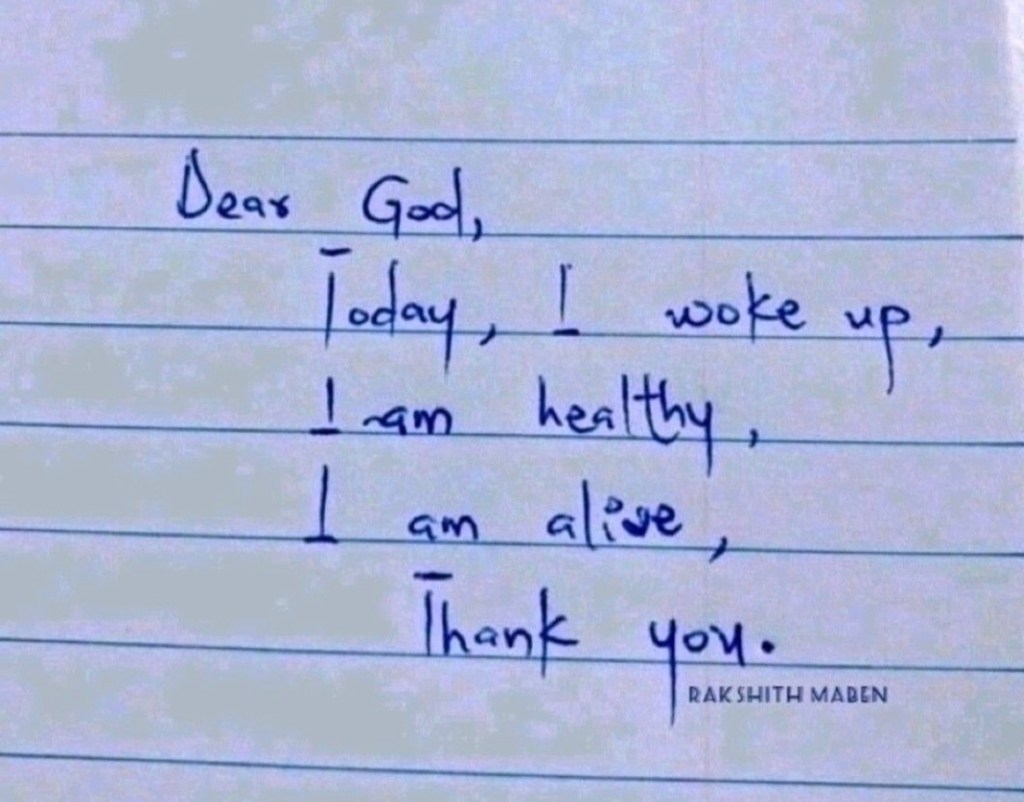 Dear God,
Today, I woke up,
I am healthy,
I am alive,
Thank you.
RAKSHITH MABEN